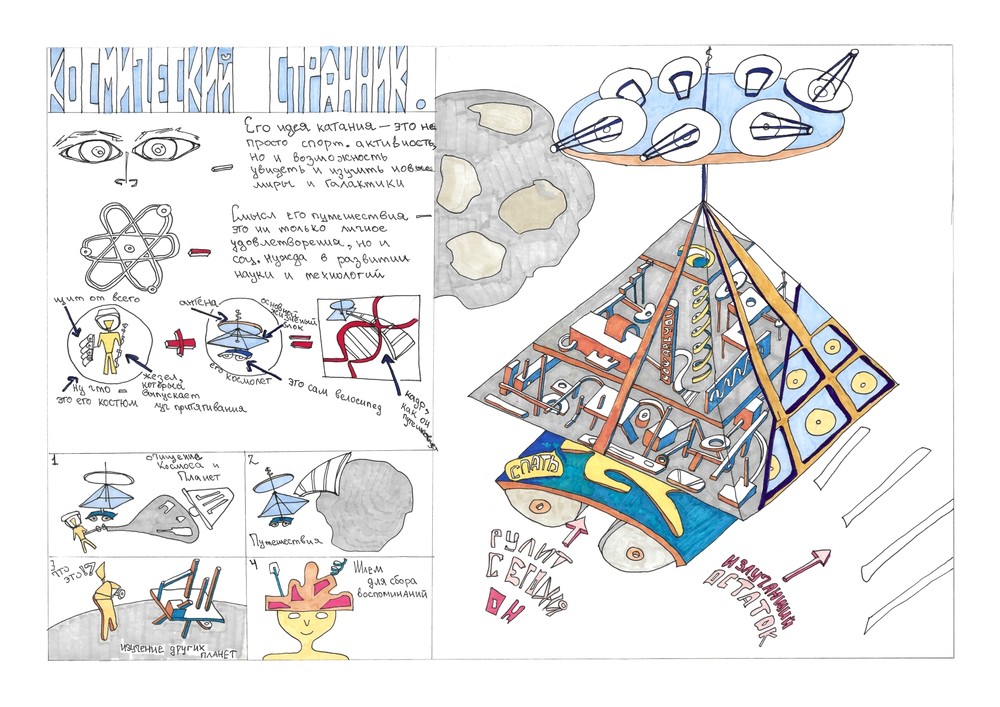 КОСМИЧЕСКИЙ СТРАННИК.
Его идея катания — это не
просто спорт. активность,
но и возможность
увидеть и изучить новые
миры и галактики
Смысл его путешествия —
это ни только личное
удовлетворения, но и
соц. нужда в развитии
науки и технологий
щит от всего
антена
основной
жизненый
блок
его космолет
жезл,
который
выпускает
луч притягивания
Ну что —
это его костюм
это сам велосипед
кадр,
как он
1
очищение
Космоса и
Планет
2
Путешествия
3
что
это!?
изучение других
планет
4
Шлем
для сбора
воспоминаний
СПАТЬ
РУЛИТ
СЕГОДНЯ
ОН
ИЗЛУЧАЮЩИЙ
ОСТАТОК